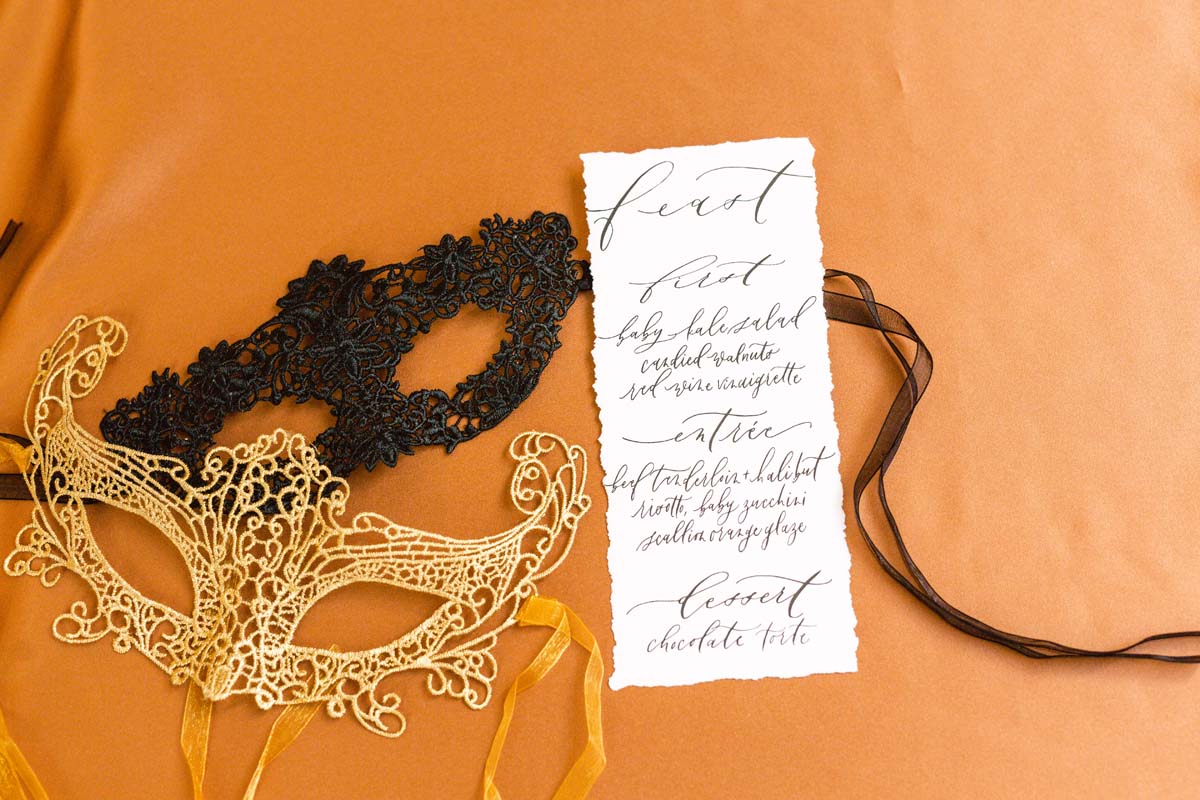 feast
first
baby kale salad
candied walnuts
red wine vinaigrette
entrée
beef tenderloin + halibut
risotto, baby zucchini
scallion orange glaze
dessert
chocolate torte